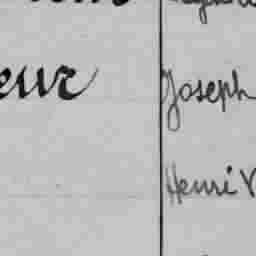 eur Joseph
Henri V